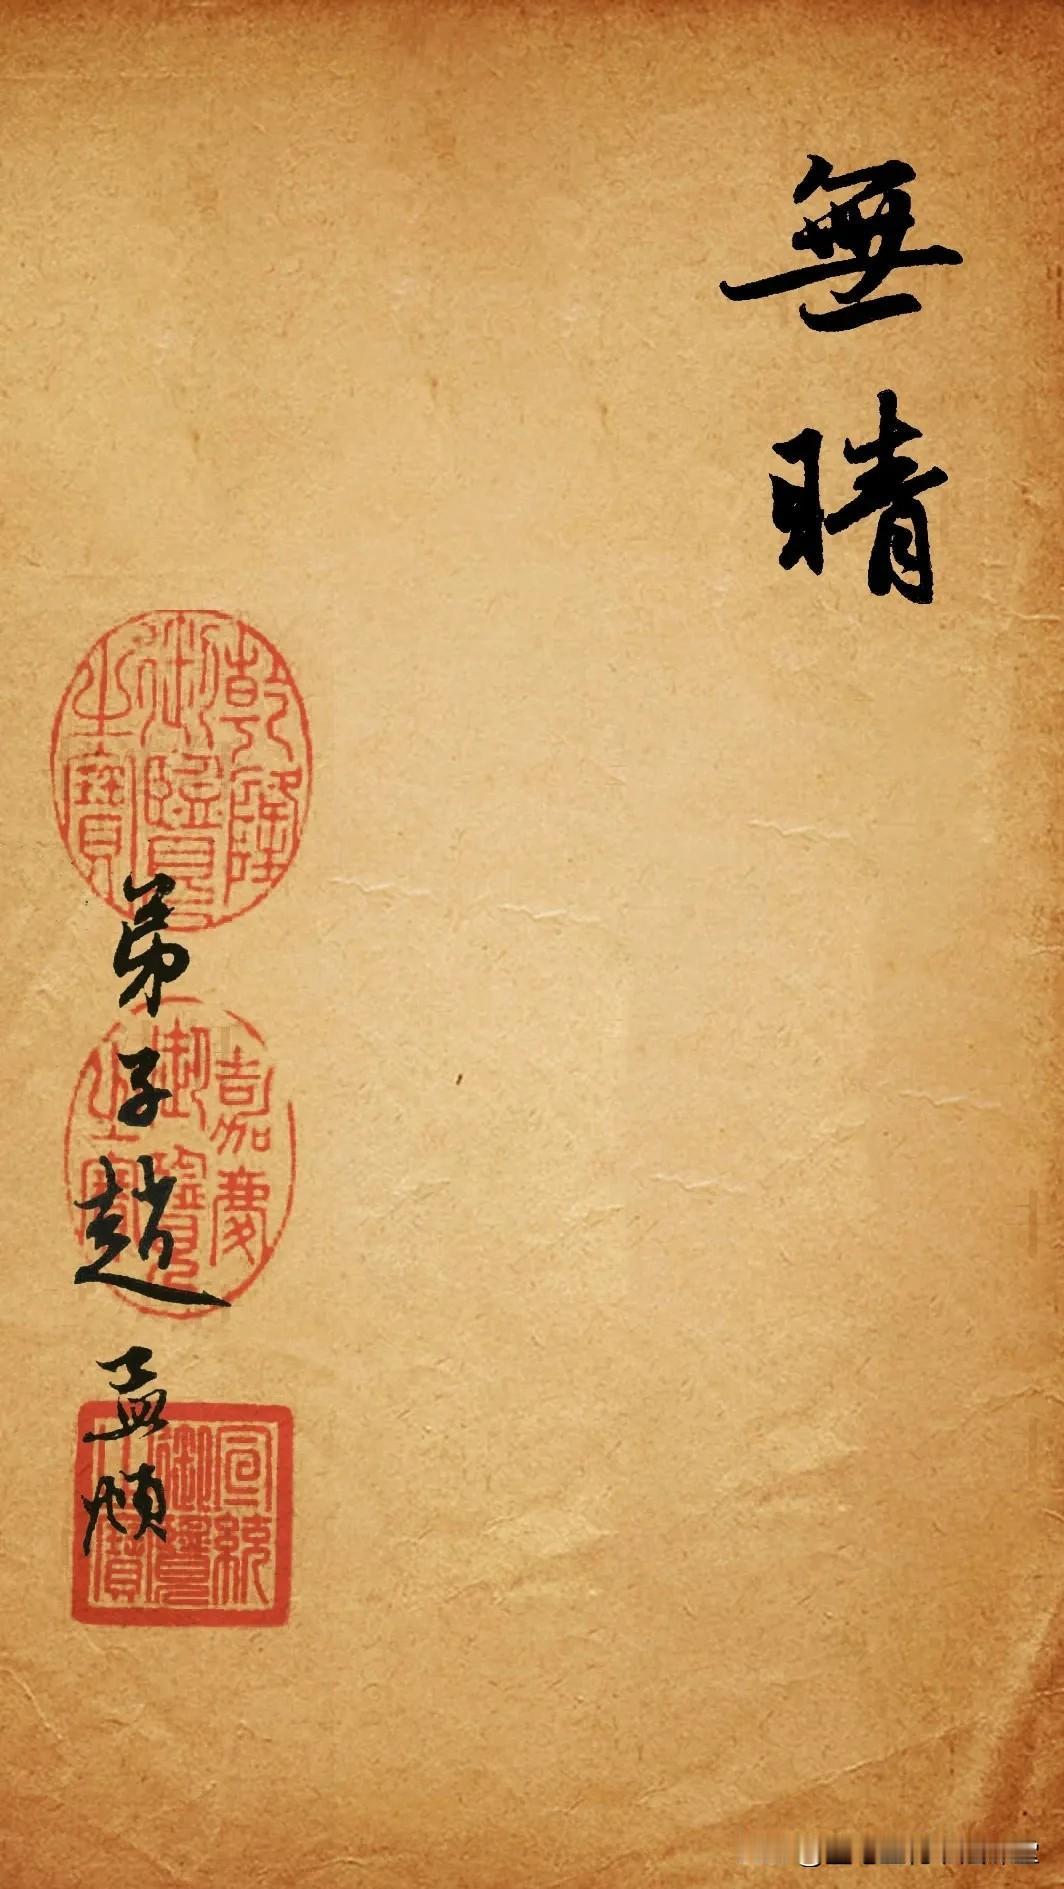 無晴
乾隆
御覽
之寶
弟子趙孟頫
嘉慶
御覽
之寶
宣統
御覽
之寶